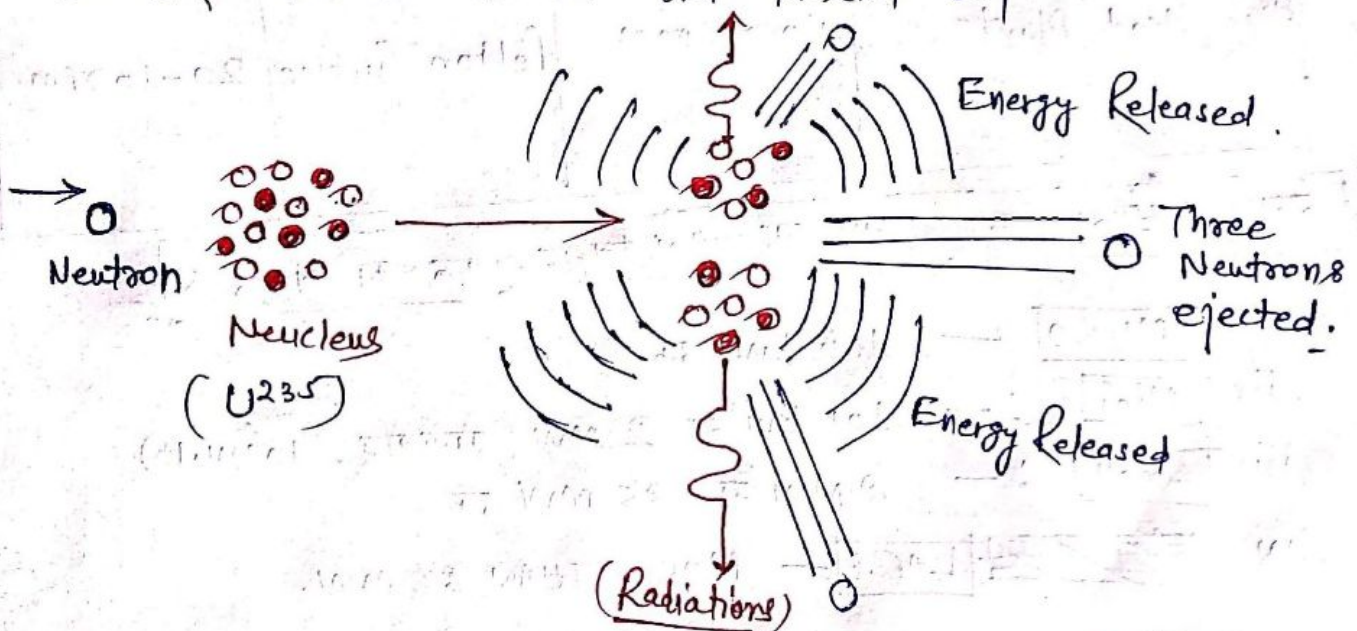 Energy Released.
Neutron
Neucleus
(U²³⁵)
Three
Neutrons
ejected.
Energy Released
(Radiations)